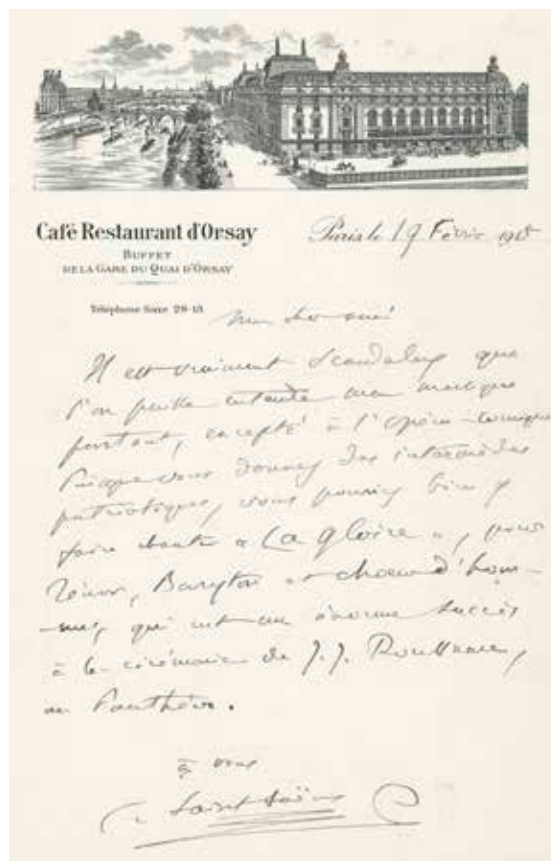 Café Restaurant d'Orsay
BUFFET
DE LA GARE DU QUAI D'ORSAY
Téléphone Saxe 28-13
Paris le 19 Février
Mon cher ami
Il est vraiment scandaleux que
l'on puisse entendre ma musique
partout, excepté à l'Opéra-Comique
Puisque vous donnez des intermèdes
patriotiques, vous pourriez bien y
faire chanter « La gloire », pour
Ténor, Baryton et choeur d'hom-
-mes, qui eut un énorme succès
à la cérémonie de J. J. Rousseau,
au Panthéon.
à vous
C. Saint-Saëns